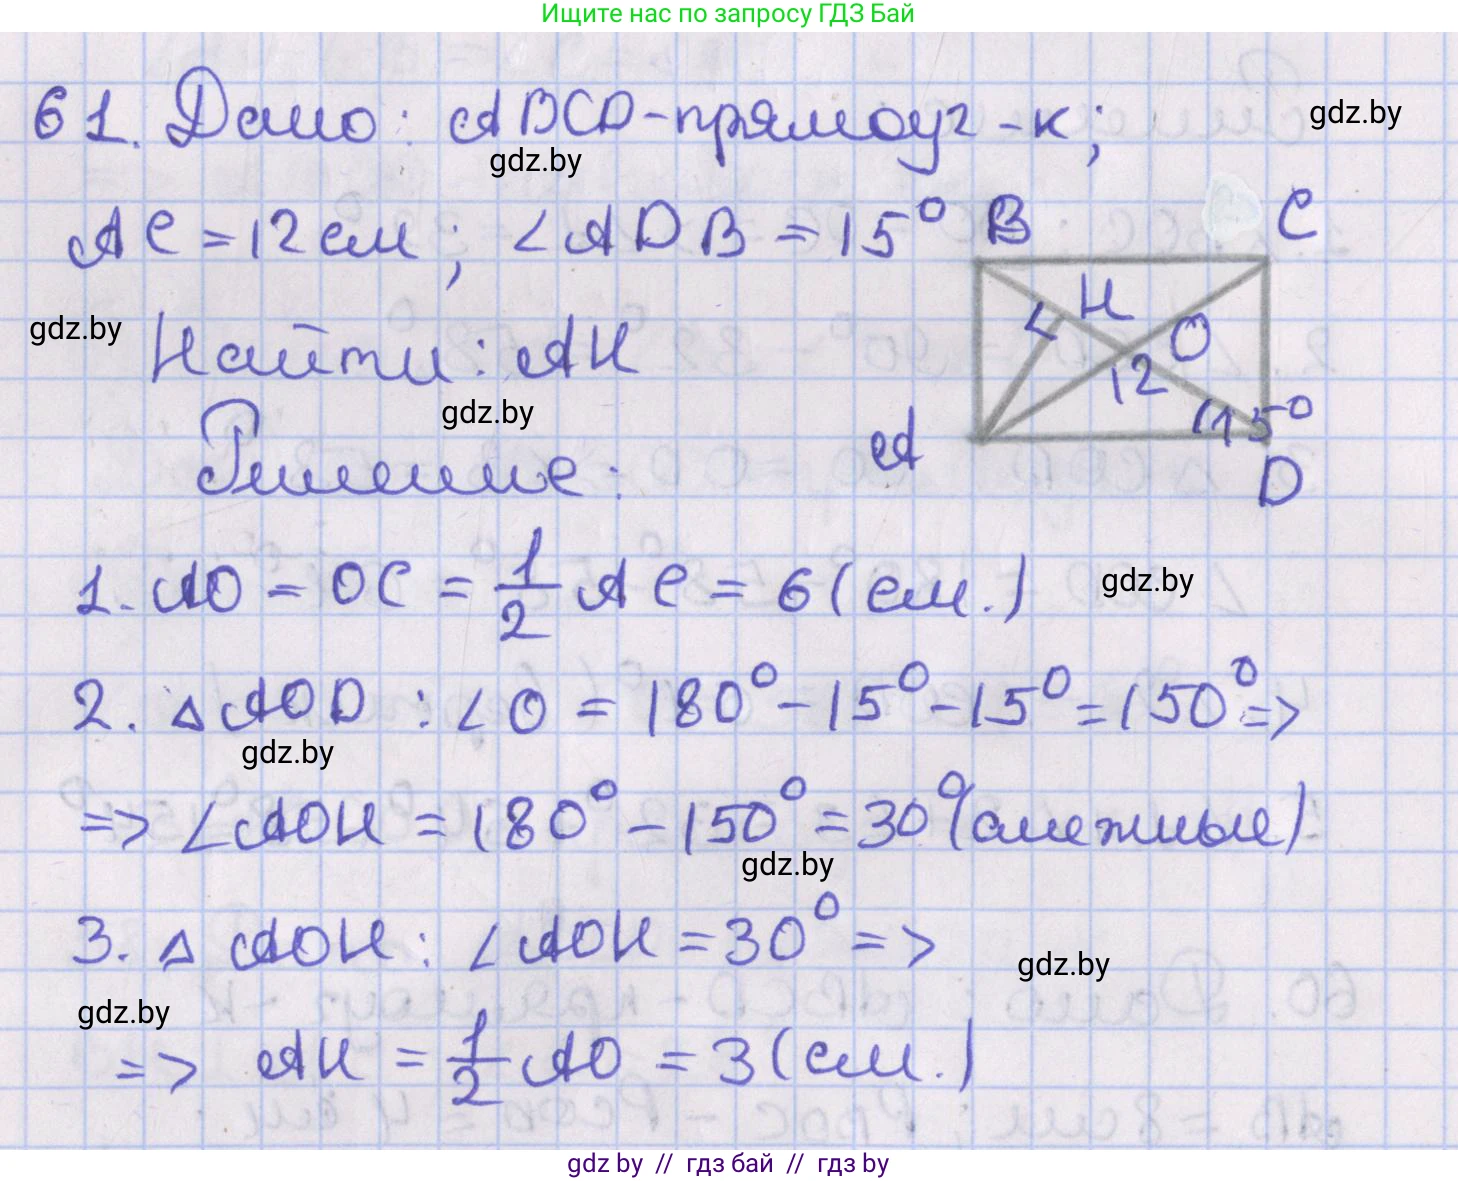 Ищите нас по запросу ГДЗ Бай
61. Дано: ABCD-прямоуг-к;
gdz.by
gdz.by
AC = 12 см; ∠ADB = 15°
B
C
gdz.by
Найти: AH
H
O
12
15°
gdz.by
A
D
Решение:
1. AO = OC = 1/2 AC = 6 (см.)
gdz.by
2. △AOD: ∠O = 180° - 15° - 15° = 150° =>
gdz.by
=> ∠AOH = 180° - 150° = 30° (смежные)
gdz.by
3. △ AOH: ∠AOH = 30° =>
gdz.by
gdz.by
=> AH = 1/2 AO = 3 (см.)
gdz by // гдз бай // гдз by